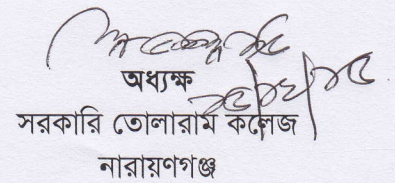 অধ্যক্ষ
সরকারি তোলারাম কলেজ
নারায়ণগঞ্জ